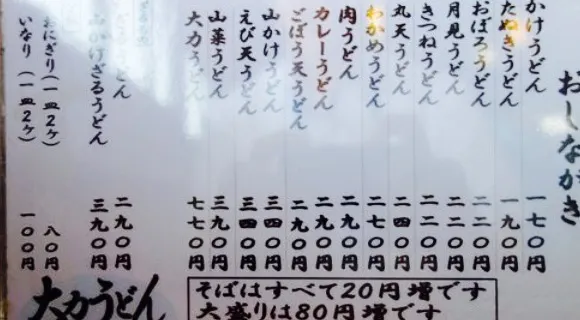 おしながき
かけうどん 一七〇円
たぬきうどん 一九〇円
おぼろうどん 二二〇円
月見うどん 二二〇円
きつねうどん 二二〇円
丸天うどん 二四〇円
わかめうどん 二七〇円
肉うどん 二九〇円
カレーうどん 二九〇円
ごぼう天うどん 二九〇円
山かけうどん 三四〇円
えび天うどん 三四〇円
山菜うどん 三九〇円
大力うどん 七七〇円
うどん 二九〇円
山かけざるうどん 三九〇円
おにぎり(一皿2ケ) 八〇円
いなり(一皿2ケ) 一〇〇円
そばはすべて20円増です
大盛りは80円増です
大力うどん